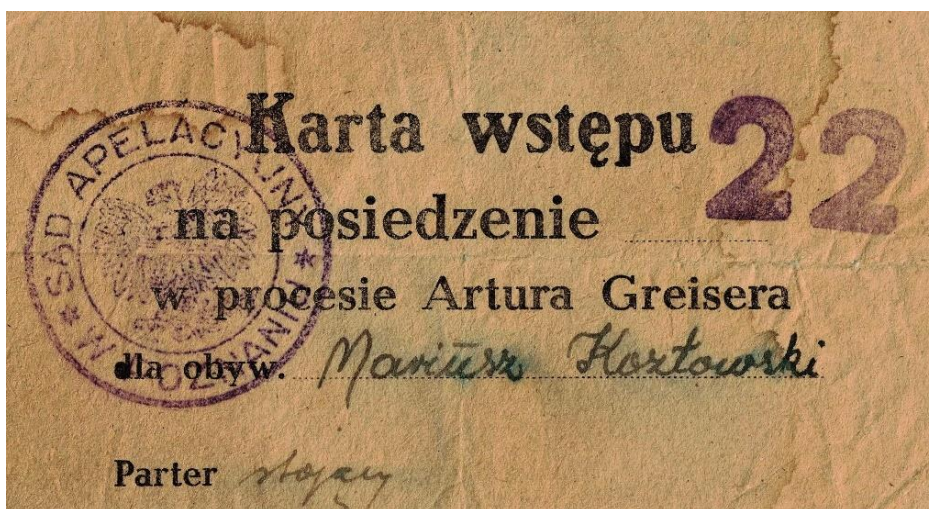 Karta wstępu
22
na posiedzenie
w procesie Artura Greisera
dla obyw. Mariusz Kozłowski
Parter stojący
SĄD APELACYJNY
W POZNANIU